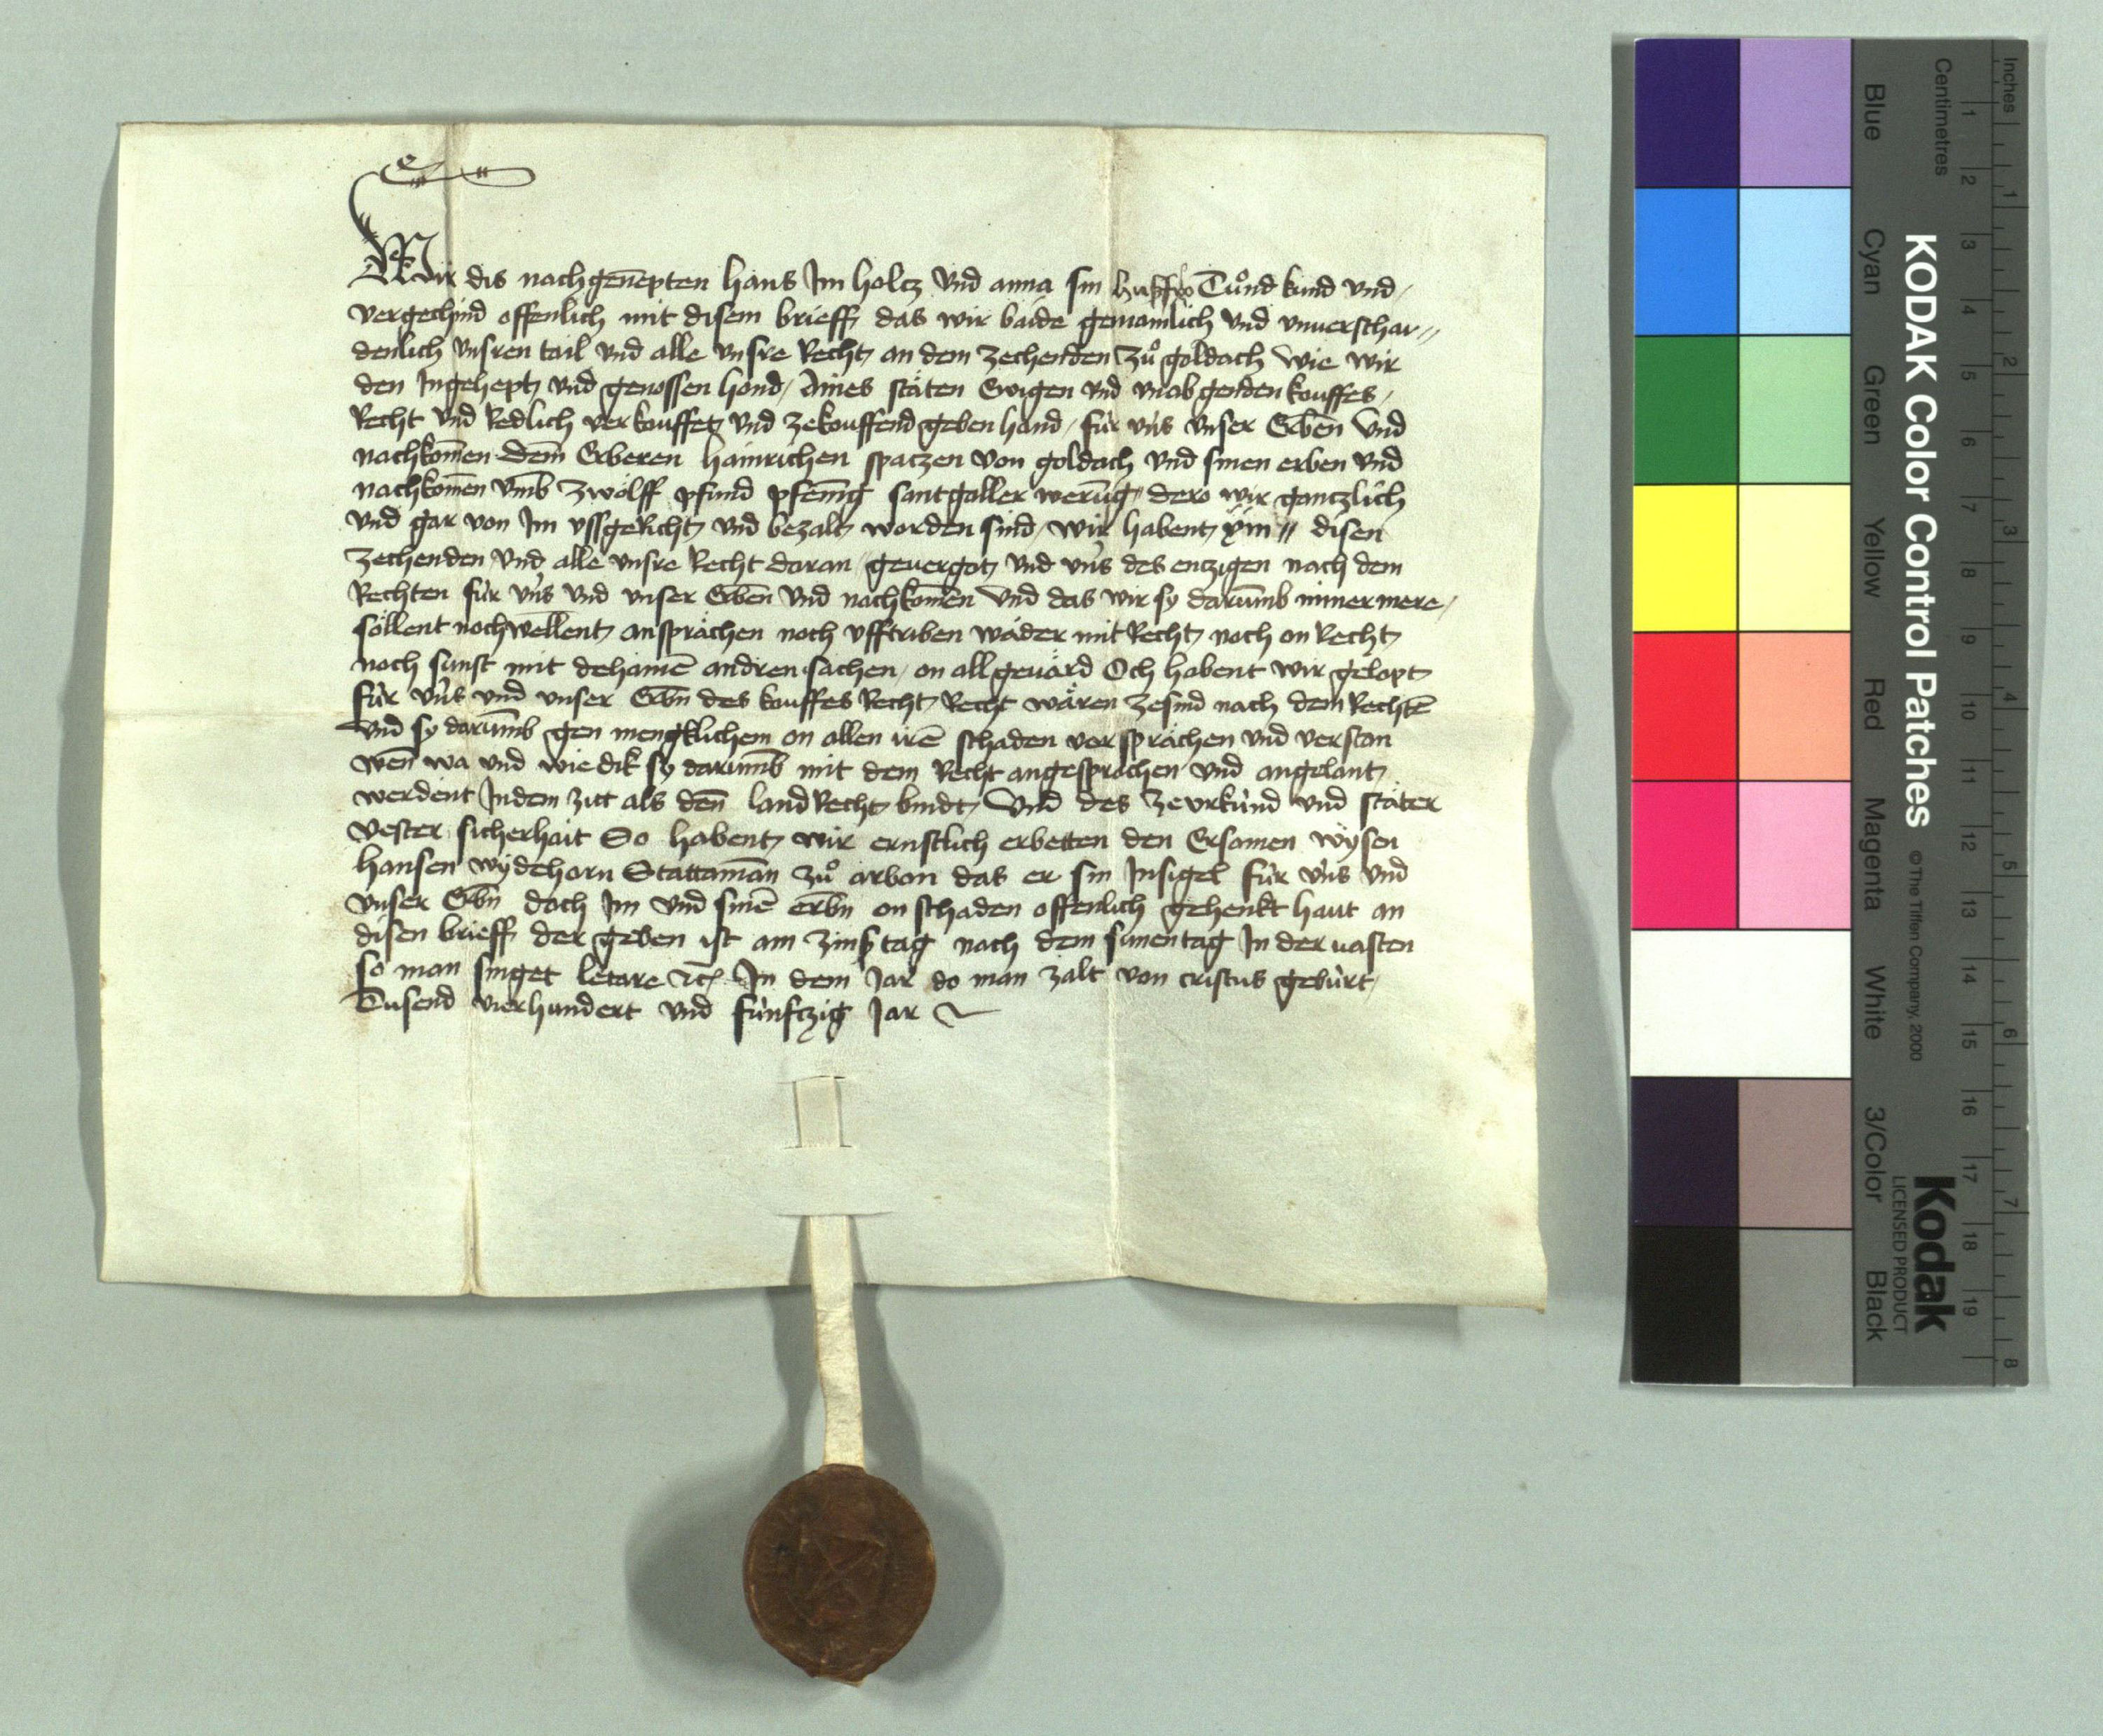 Wir dis nachgenēpten hans Jm holcz vnd anna sin husfro Tuͦnd kund vnd
vergechind offenlich mit disem brieff das wir baide gemainlich vnd vnuerschai-
denlich vnsren tail vnd alle vnsre Recht an dem zechenden zuͦ goldach wie wir
den Jngehept vnd genossen hond Aines stäten Ewigen vnd vnabgenden kouffes
Recht vnd Redlich verkouffet vnd zekouffend geben hand für vns vnser Erben Vnd
nachkomēn dem Erberen hainrichen spatzen von goldach vnd sinen erben vnd
nachkomēn vmb zwölff pfund pfenīg santgaller werūg dero wir gantzlich
vnd gar von Jm vssgeRicht vnd bezalt worden sind wir habent disen
zechenden vnd alle vnsre Recht daran geuergot vnd vns des entzigen nach dem
Rechten für vns vnd vnser Erben vnd nachkomēn Vnd das wir sy darumb nimer mere
söllent noch wellent ansprächen noch vfftriben wäder mit Recht noch on Recht
noch sunst mit dehainē andren sachen on all geuärd Och habent wir gelopt
für vns vnd vnser Erbn des kouffes Recht Recht wären zesind nach dem Rechtē
vnd sy darumb gen mengklichem on allen irē schaden versprächen vnd verstan
wen wa vnd wie dik sy darumb mit dem Recht angesprochen vnd angelant
werdent Jndem zitt als den landRecht bindt Vnd des zevrkünd vnd stäter
Vester sicherhait So habent wir ernstlich erbetten den Ersamen wÿsen
hansen wÿdehorn Stattamān zuͦ arbon das er sin Jnsigel für vns vnd
vnser Erbn doch Jm vnd sinē erbn on schaden offenlich gehenkt haut an
disen brieff der geben ist am zinstag nach dem sunentag Jn der vasten
so man singet letare ꝛc Jn dem Jar do man zalt von cristus gebürt
Tusend vierhundert vnd fünftzig Jar
KODAK Color Control Patches © The Tiffen Company, 2000
Kodak
LICENSED PRODUCT
Blue Cyan Green Yellow Red Magenta White 3/Color Black
Inches 1 2 3 4 5 6 7 8
Centimetres 1 2 3 4 5 6 7 8 9 10 11 12 13 14 15 16 17 18 19